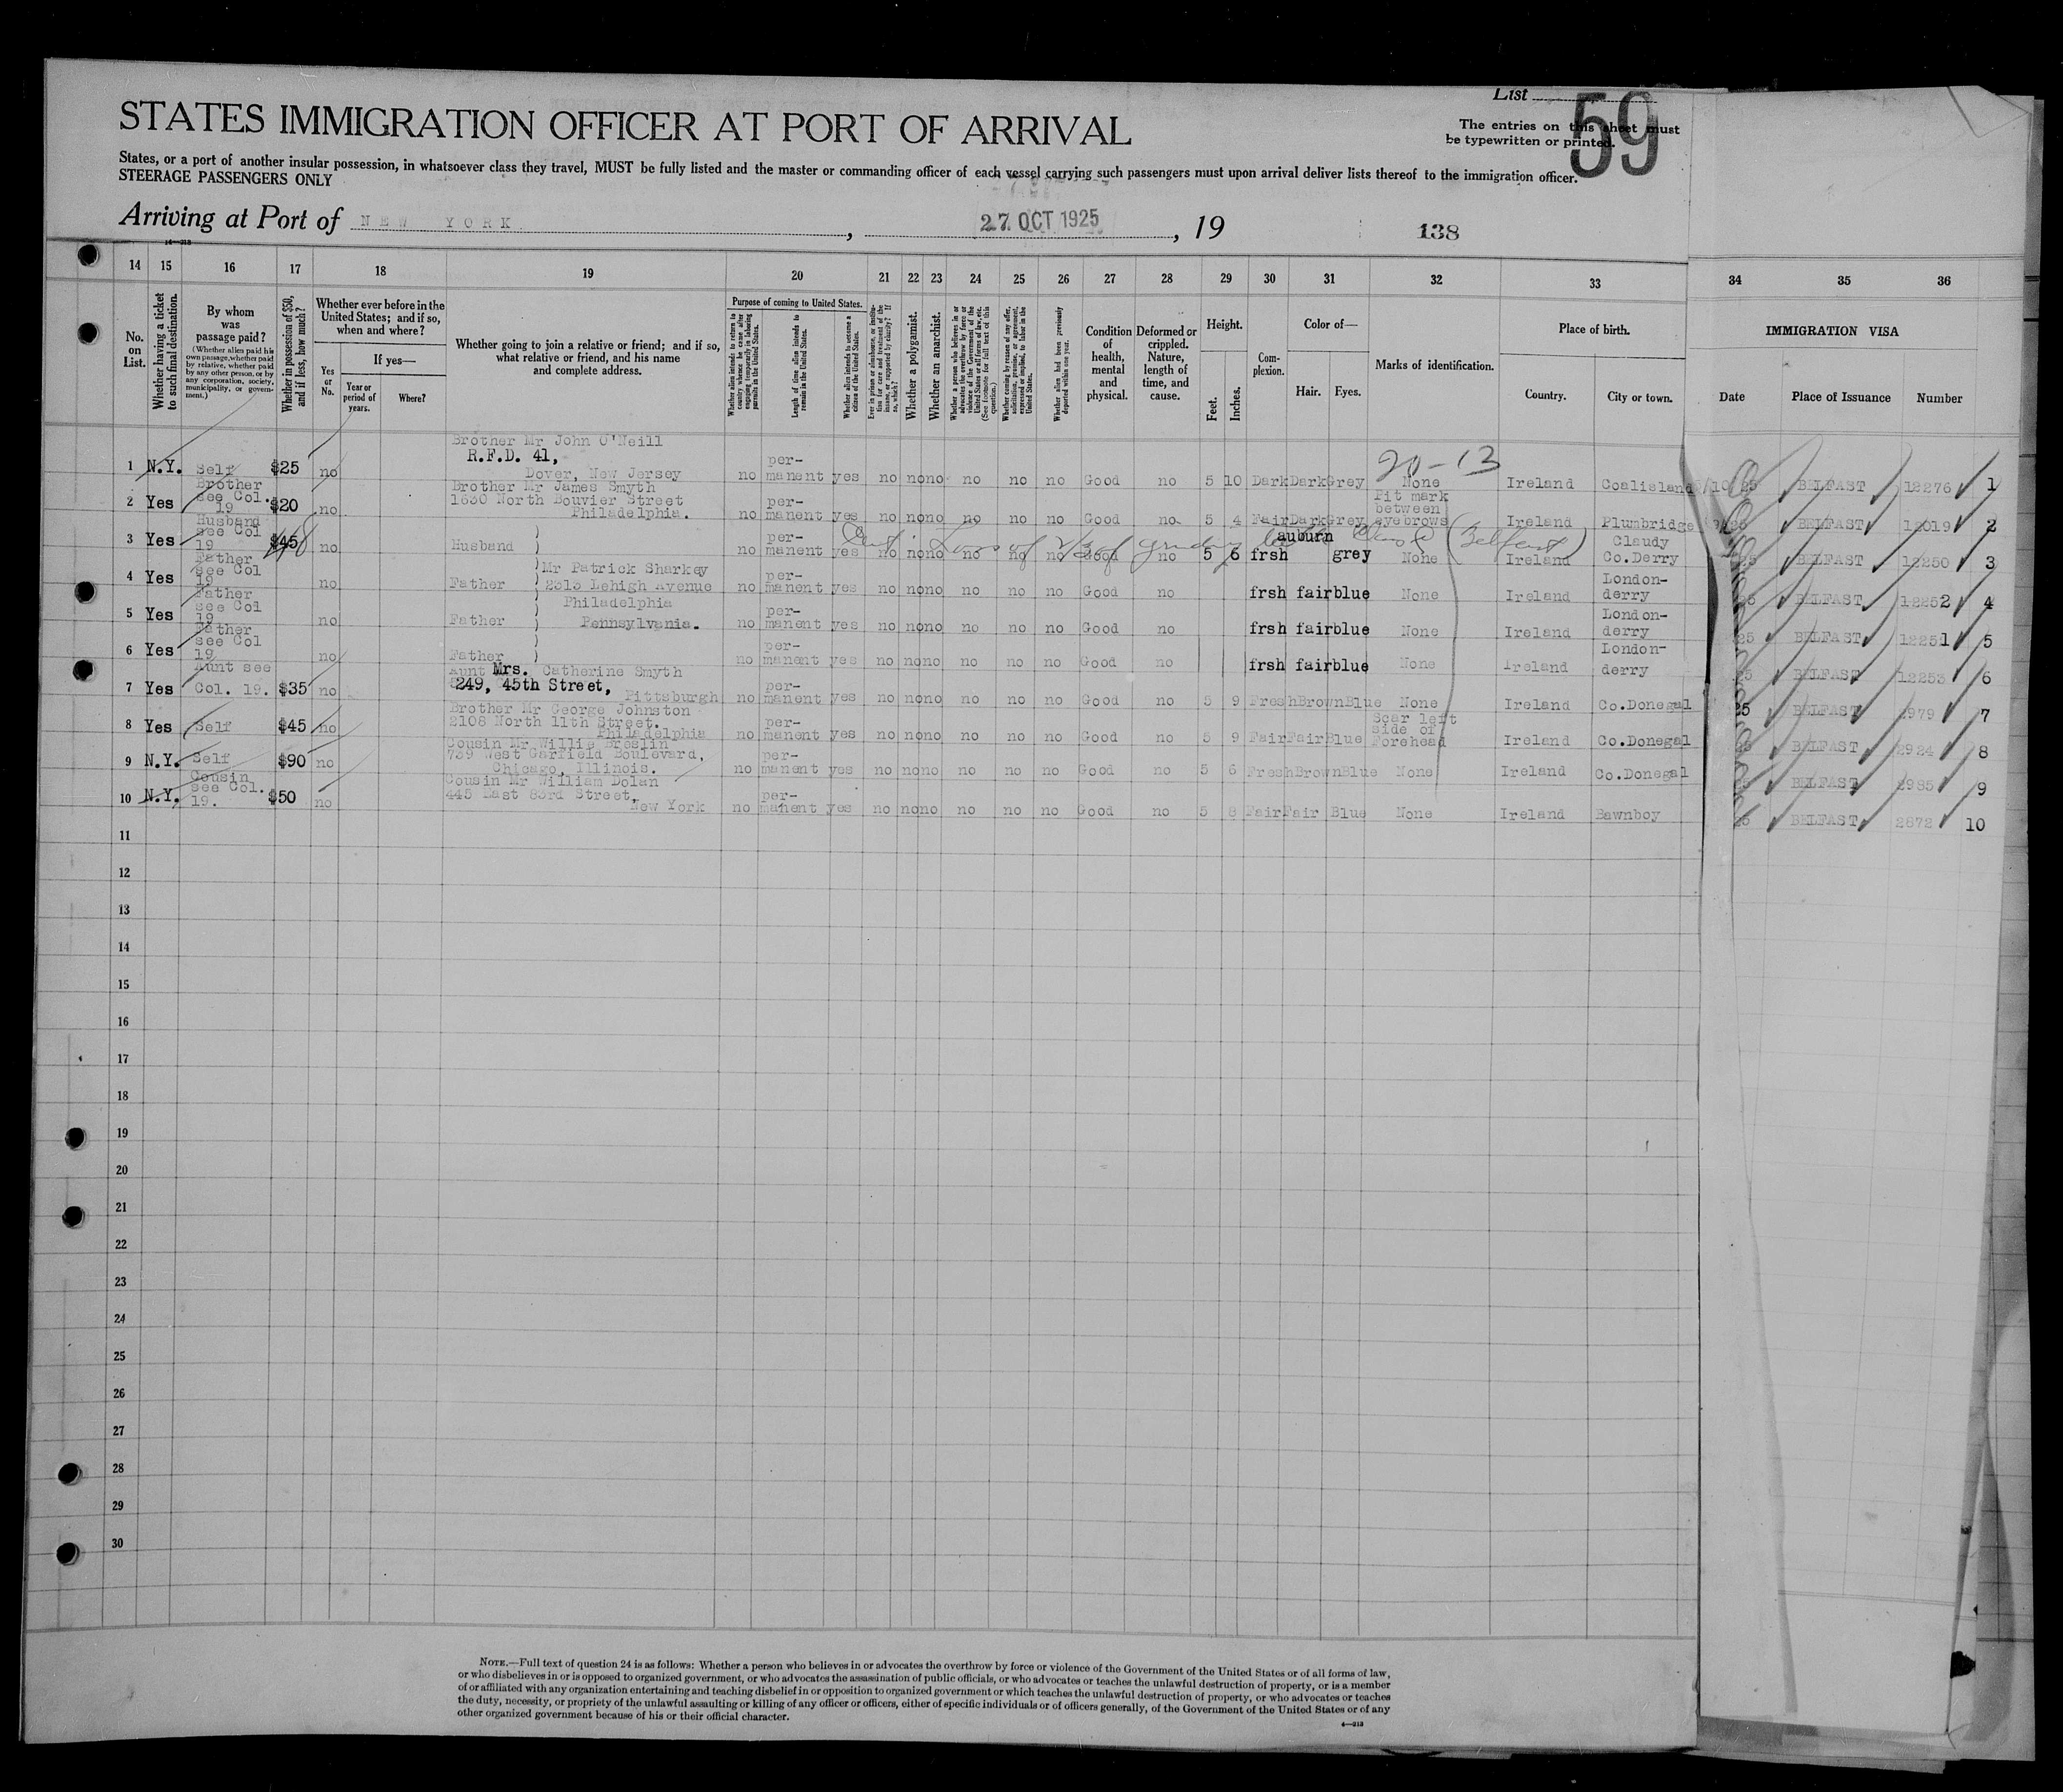 List
59
The entries on this sheet must
be typewritten or printed.
STATES IMMIGRATION OFFICER AT PORT OF ARRIVAL
States, or a port of another insular possession, in whatsoever class they travel, MUST be fully listed and the master or commanding officer of each vessel carrying such passengers must upon arrival deliver lists thereof to the immigration officer.
STEERAGE PASSENGERS ONLY
Arriving at Port of NEW YORK, 27 OCT 1925, 19 138
14 15 16 17 18 19 20 21 22 23 24 25 26 27 28 29 30 31 32 33 34 35 36
No. on List.
Whether having a ticket to such final destination.
By whom was passage paid?
(Whether alien paid his own passage, whether paid by relative, whether paid by any other person, or by any corporation, society, municipality, or government.)
Whether in possession of $50, and if less, how much?
Whether ever before in the United States; and if so, when and where?
Yes or No.
If yes—
Year or period of years.
Where?
Whether going to join a relative or friend; and if so, what relative or friend, and his name and complete address.
Purpose of coming to United States.
Whether alien intends to return to country whence he came after engaging temporarily in laboring pursuits in the United States.
Length of time alien intends to remain in the United States.
Whether alien intends to become a citizen of the United States.
Whether a polygamist.
Whether an anarchist.
Condition of health, mental and physical.
Deformed or crippled. Nature, length of time, and cause.
Height.
Feet.
Inches.
Complexion.
Color of—
Hair. Eyes.
Marks of identification.
Place of birth.
Country. City or town.
IMMIGRATION VISA
Date Place of Issuance Number
20-13
1 N.Y. Self $25 no Brother Mr John O'Neill R.F.D. 41, Dover, New Jersey no per-manent yes no no no no no no Good no 5 10 Dark Dark Grey None Ireland Coalisland BELFAST 12276 1
2 Yes Brother see Col. 19 $20 no Brother Mr James Smyth 1630 North Bouvier Street Philadelphia. no per-manent yes no no no no no no Good no 5 4 Fair Dark Grey Pit mark between eyebrows Ireland Plumbridge BELFAST 12019 2
3 Yes Husband see Col 19 $45 no Husband no per-manent yes no no no no no no Good no 5 6 frsh auburn grey None Ireland Claudy Co.Derry BELFAST 12250 3
(Belfast)
4 Yes Father see Col 19 no Father Mr Patrick Sharkey 2313 Lehigh Avenue no per-manent yes no no no no no no Good no frsh fair blue None Ireland London-derry BELFAST 12252 4
5 Yes Father see Col 19 no Father Philadelphia Pennsylvania. no per-manent yes no no no no no no Good no frsh fair blue None Ireland London-derry BELFAST 12251 5
6 Yes Father see Col 19 no Father no per-manent yes no no no no no no Good no frsh fair blue None Ireland London-derry BELFAST 12253 6
7 Yes Aunt see Col. 19. $35 no Aunt Mrs. Catherine Smyth 249, 45th Street, Pittsburgh no per-manent yes no no no no no no Good no 5 9 Fresh Brown Blue None Ireland Co.Donegal BELFAST 2979 7
8 Yes Self $45 no Brother Mr George Johnston 2108 North 11th Street. Philadelphia no per-manent yes no no no no no no Good no 5 9 Fair Fair Blue Scar left side of Forehead Ireland Co.Donegal BELFAST 2924 8
9 N.Y. Self $90 no Cousin Mr Willie Breslin 739 West Garfield Boulevard, Chicago, Illinois. no per-manent yes no no no no no no Good no 5 6 Fresh Brown Blue None Ireland Co.Donegal BELFAST 2985 9
10 N.Y. Cousin see Col. 19. $50 no Cousin Mr William Dolan 445 East 83rd Street, New York no per-manent yes no no no no no no Good no 5 8 Fair Fair Blue None Ireland Bawnboy BELFAST 2872 10
11
12
13
14
15
16
17
18
19
20
21
22
23
24
25
26
27
28
29
30
NOTE.—Full text of question 24 is as follows: Whether a person who believes in or advocates the overthrow by force or violence of the Government of the United States or of all forms of law,
or who disbelieves in or is opposed to organized government, or who advocates the assassination of public officials, or who advocates or teaches the unlawful destruction of property, or is a member
of or affiliated with any organization entertaining and teaching disbelief in or opposition to organized government or which teaches the unlawful destruction of property, or who advocates or teaches
the duty, necessity, or propriety of the unlawful assaulting or killing of any officer or officers, either of specific individuals or of officers generally, of the Government of the United States or of any
other organized government because of his or their official character.